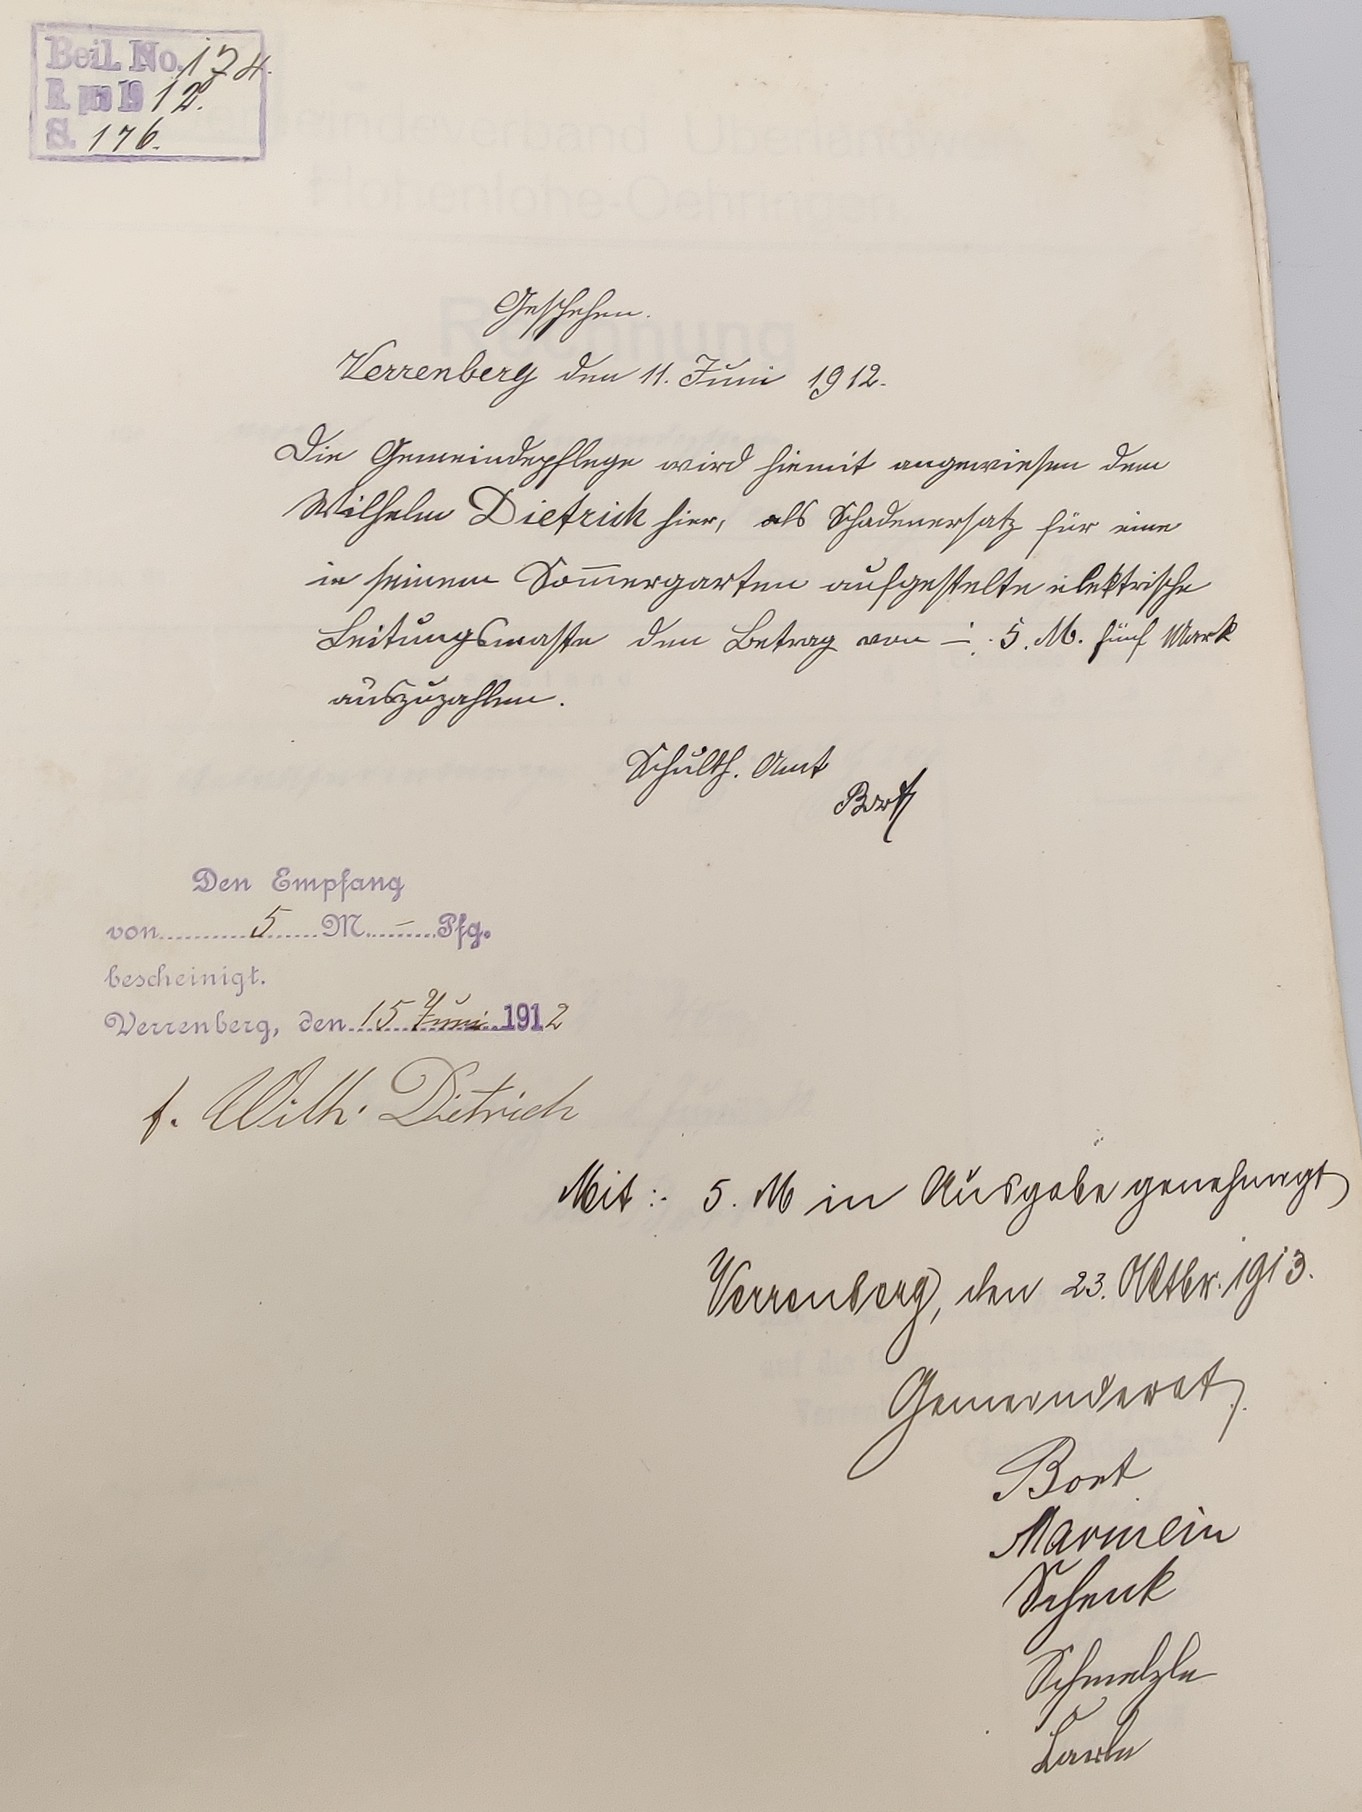 Beil. No. 174.
R. pro 1912.
S. 176.
Gemeindeverband Überlandwerk
Hohenlohe-Oehringen.
Rechnung
Geschehen.
Verrenberg den 11. Juni 1912.
Die Gemeindepflege wird hiemit angewiesen dem
Wilhelm Dietrich hier, als Schadenersatz für eine
in seinem Som̅ergarten aufgestelte elektrische
Leitungsmaste den Betrag von -·- 5. M. fünf Mark
auszuzahlen.
Schulth. Amt
Bort
Den Empfang
von 5 M. – Pfg.
bescheinigt.
Verrenberg, den 15 Juni 1912
t. Wilh. Dietrich
Mit :- 5. M in Ausgabe genehmigt
Verrenberg, den 23. Oktbr. 1913.
Gemeinderat.
Bort
Schenk
Schmelzle